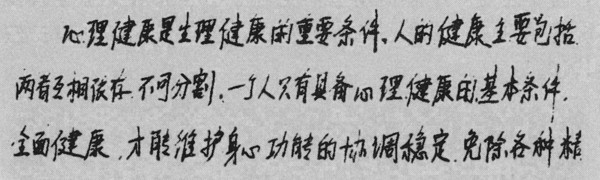 心理健康是生理健康的重要条件,人的健康主要包括
两者互相依存 不可分割.一个人只有具备心理健康的基本条件,
全面健康,才能维护身心功能的协调稳定,免除各种精